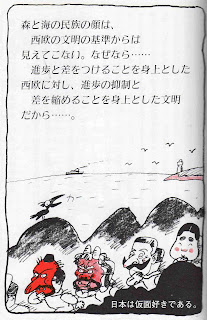 森と海の民族の顔は、
西欧の文明の基準からは
見えてこない。なぜなら……
進歩と差をつけることを身上とした
西欧に対し、進歩の抑制と
差を縮めることを身上とした文明
だから……。
カー
日本は仮面好きである。